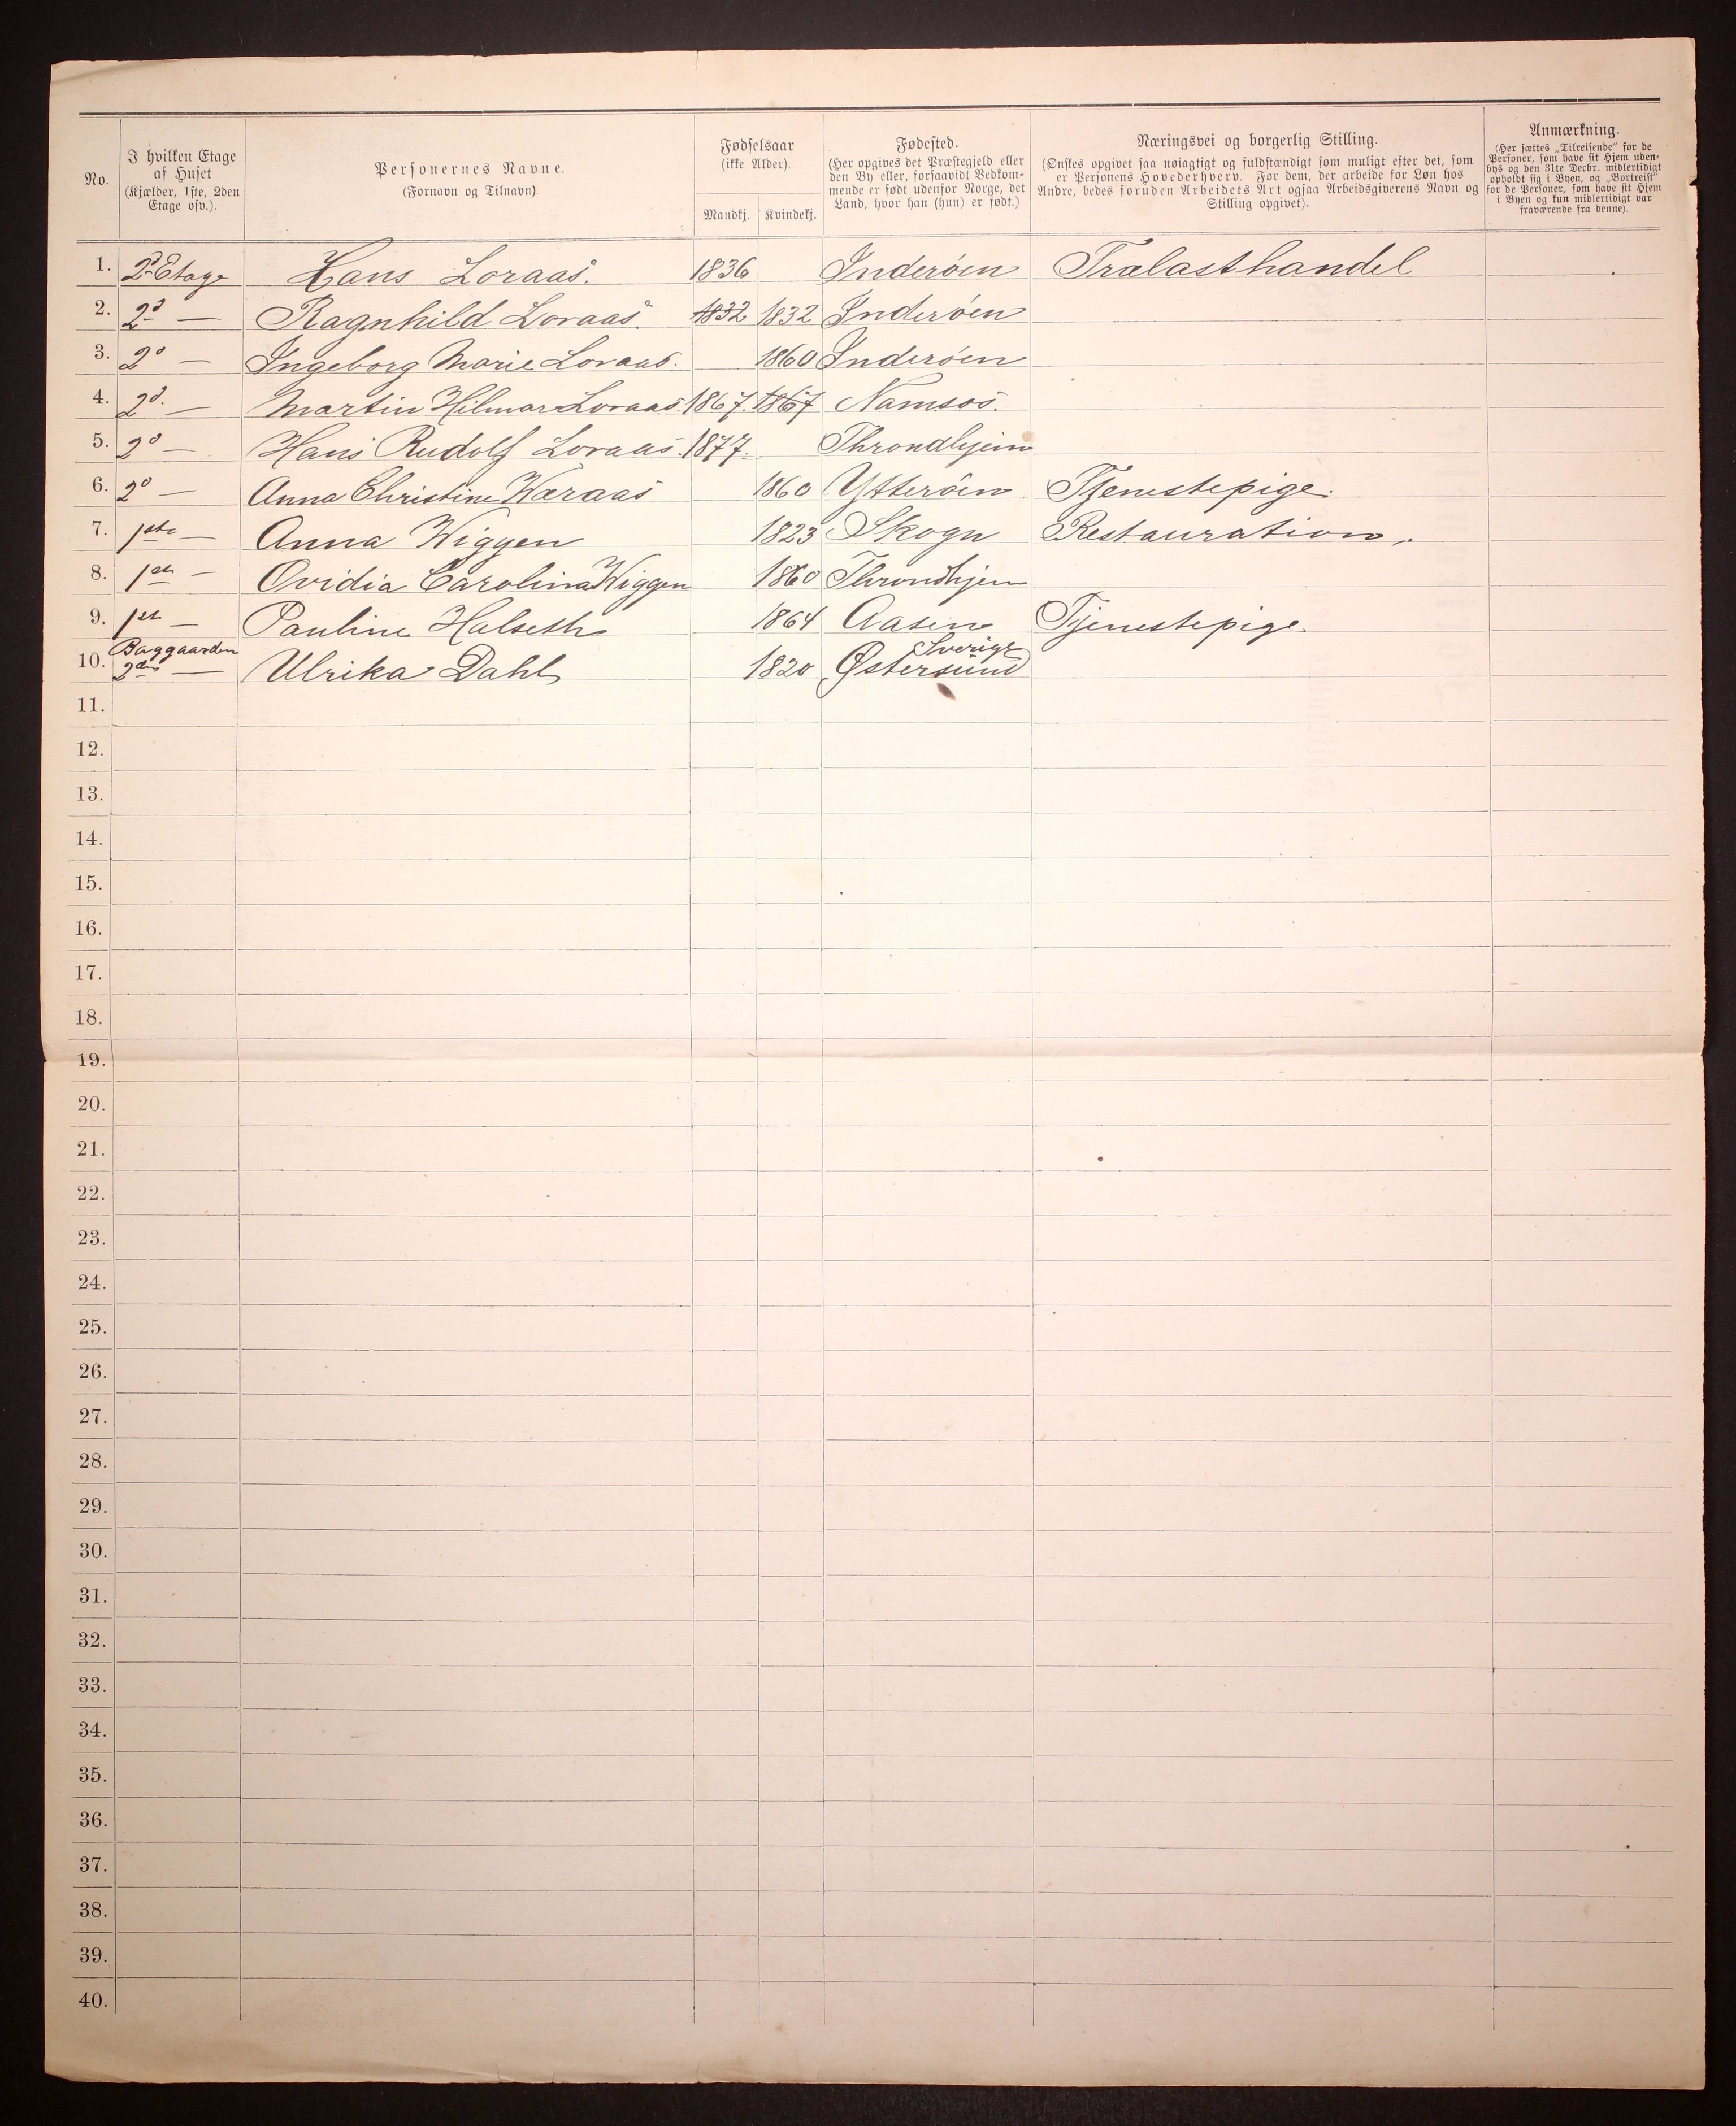 No.
I hvilken Etage
af Huset
(Kjælder, 1ste, 2den
Etage osv.).
Personernes Navne.
(Fornavn og Tilnavn).
Fødselsaar
(ikke Alder).
Mandkj. Kvindekj.
Fødested.
(Her opgives det Præstegjeld eller
den By eller, forsaavidt Vedkom-
mende er født udenfor Norge, det
Land, hvor han (hun) er født.)
Næringsvei og borgerlig Stilling.
(Ønskes opgivet saa nøiagtigt og fuldstændigt som muligt efter det, som
er Personens Hovederhverv. For dem, der arbeide for Løn hos
Andre, bedes foruden Arbeidets Art ogsaa Arbeidsgiverens Navn og
Stilling opgivet).
Anmærkning.
(Her sættes „Tilreisende" for de
Personer, som have sit Hjem uden-
bys og den 31te Decbr. midlertidigt
opholdt sig i Byen, og „Bortreist"
for de Personer, som have sit Hjem
i Byen og kun midlertidigt var
fraværende fra denne).
1. 2d Etage Hans Loraas. 1836 Inderöen Trælasthandel
2. 2d — Ragnhild Loraas. 1832 1832 Inderöen
3. 2d — Ingeborg Marie Loraas. 1860 Inderöen
4. 2d. — Martin Hilmar Loraas. 1867. 1867 Namsos.
5. 2d — Hans Rudolf Loraas. 1877. Throndhjem
6. 2d — Anna Christine Wæraas 1860 Ytteröen Tjenestepige.
7. 1ste — Anna Wiggen 1823 Skogn Restauration.
8. 1ste — Ovidia Carolina Wiggen 1860 Throndhjem
9. 1ste — Pauline Halseth 1864 Aasen Tjenestepige.
Baggaarden Sverige
10. 2den — Ulrika Dahl 1820 Østersund
11.
12.
13.
14.
15.
16.
17.
18.
19.
20.
21.
22.
23.
24.
25.
26.
27.
28.
29.
30.
31.
32.
33.
34.
35.
36.
37.
38.
39.
40.